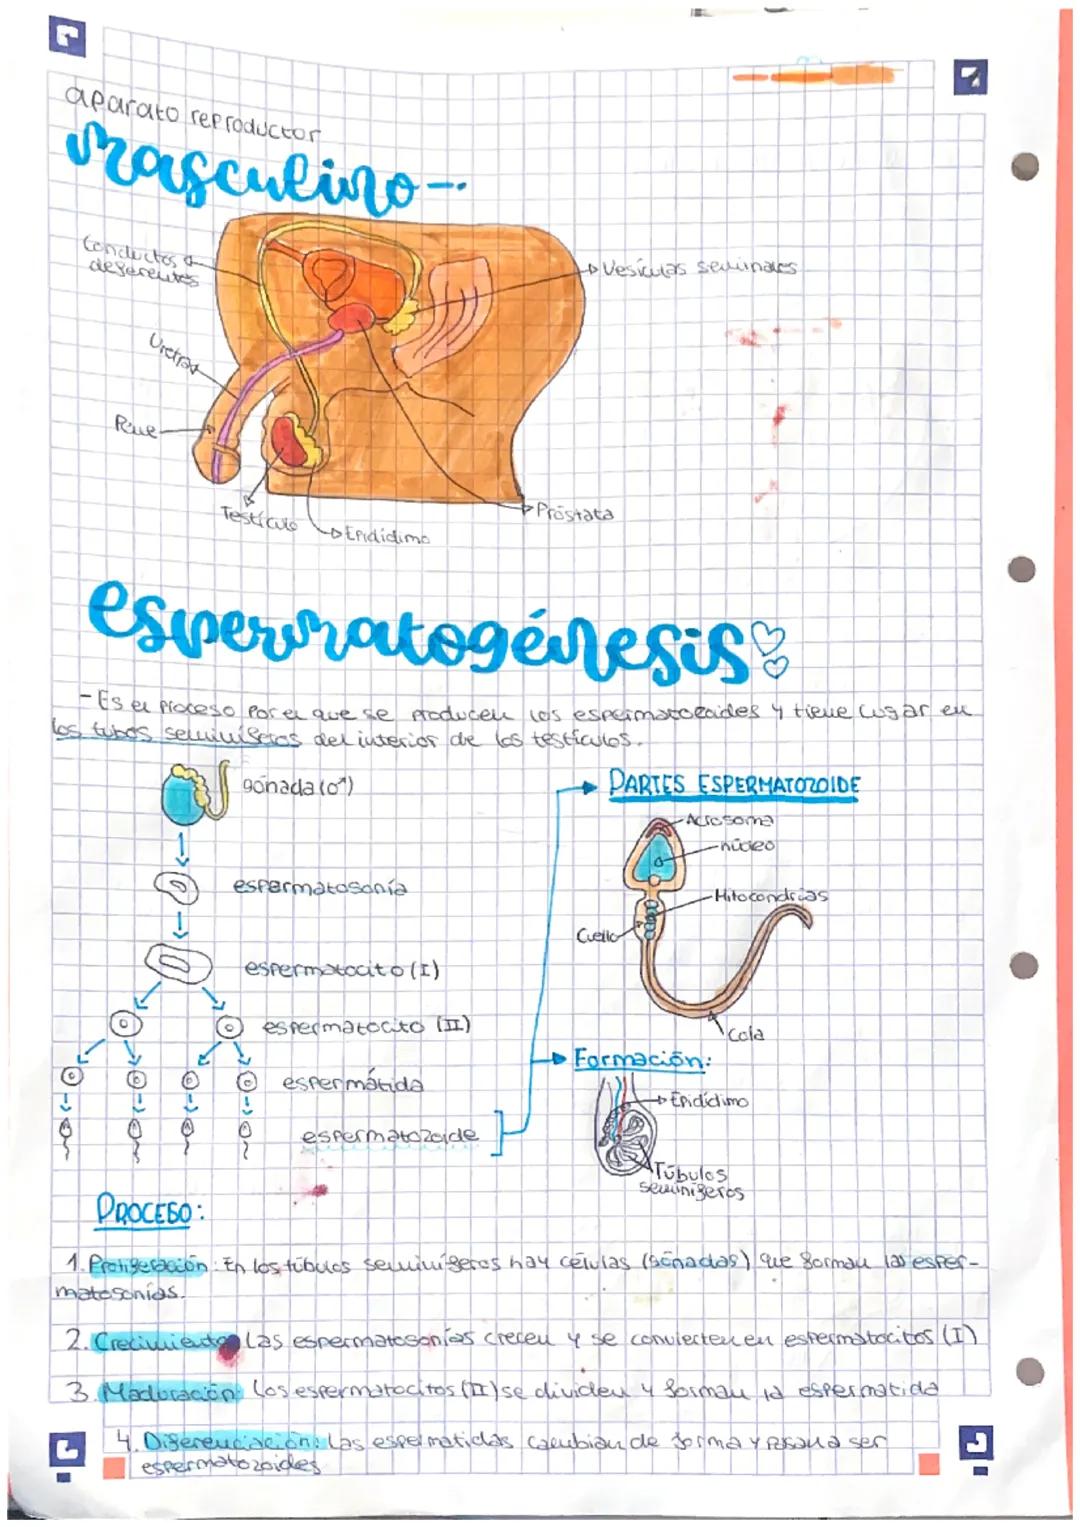 aparato reproductor
Masculino
Conductos
deferentes
Vesículas seminales
Uretra
Pene
Testículo
Epidídimo
Próstata
espermatogénesis
- Es el proceso por el que se producen los espermatozoides y tiene lugar en
los tubos seminíferos del interior de los testículos.
gónada (♂)
PARTES ESPERMATOZOIDE
Acrosoma
núcleo
espermatogonía
Mitocondrias
Cuello
espermatocito (I)
espermatocito (II)
Cola
Formación:
espermátida
Epidídimo
espermatozoide
Túbulos
seminíferos
PROCESO:
1. Proliferación: En los túbulos seminíferos hay células (gónadas) que forman las esper-
matogonías.
2. Crecimiento Las espermatogonías crecen y se convierten en espermatocitos (I)
3. Maduración: Los espermatocitos (II) se dividen y forman la espermatida
4. Diferenciación: Las espermatidas cambian de forma y pasan a ser
espermatozoides